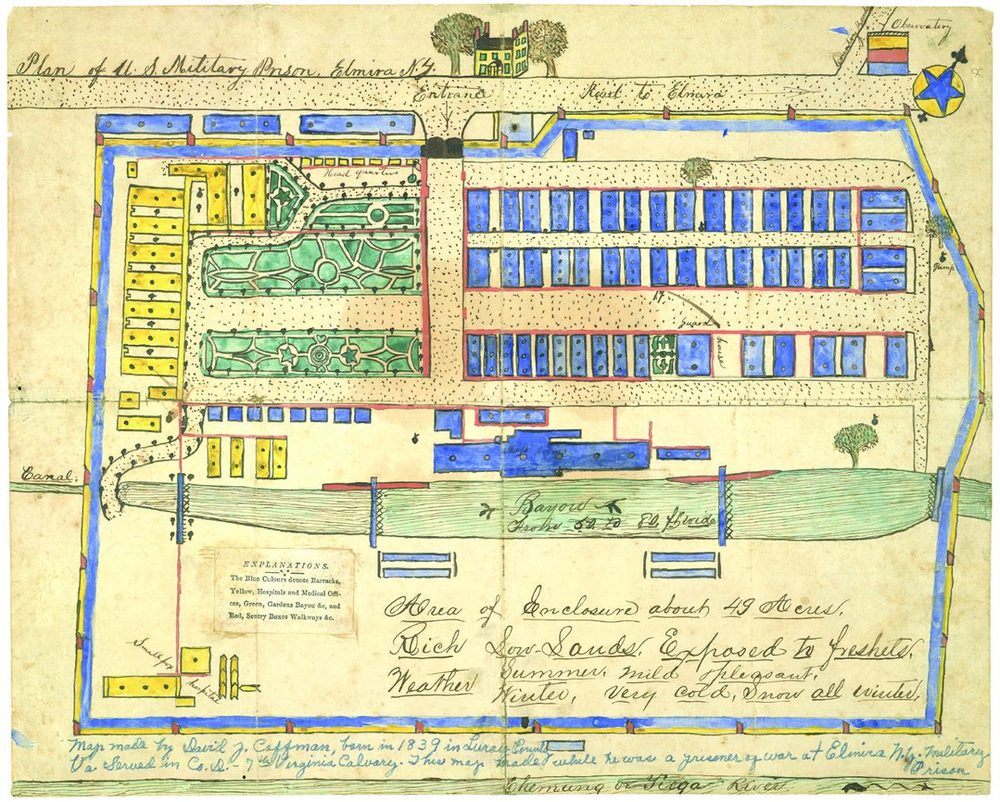 Observatory
Plan of U. S. Military Prison, Elmira N.Y.
Entrance
Road to Elmira
Head quarters
Pump
17.
guard
house
Canal.
Bayou
From 50 to 80 ft wide
EXPLANATIONS.
The Blue Colours denote Barracks,
Yellow, Hospitals and Medical Offi-
ces, Green, Gardens Bayou &c, and
Red, Sentry Boxes Walkways &c.
Area of Enclosure about 49 Acres.
Rich Low Lands. Exposed to freshets.
Weather Summer, mild & pleasant.
Winter, Very cold, Snow all winter.
Smallpox
hospital
Map made by David J. Coffman, born in 1839 in Luray County
Va Served in Co. D. - 7th Virginia Calvary. This map made while he was a prisoner of war at Elmira N.Y. Military
Prison
Chemung or Tioga River.